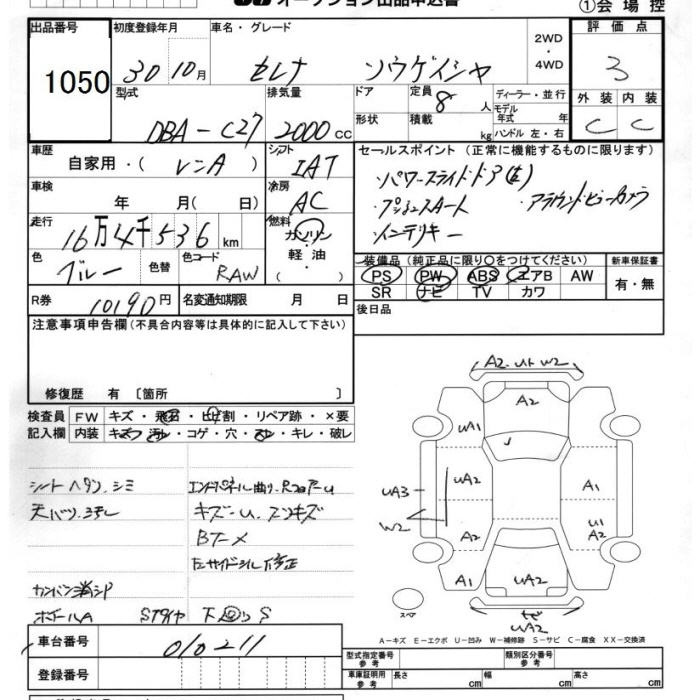 オークション出品申込書
①会場控
出品番号 初度登録年月 車名・グレード 2WD 評価点
1050 30 10月 セレナ ソウゲイシャ ・4WD 3
型式 排気量 ドア 定員 ディーラー・並行 外装 内装
DBA-C27 2000cc 8人 モデル年式 年式 C C
形状 積載 kg ハンドル 左・右
車歴 シフト セールスポイント (正常に機能するものに限ります)
自家用・( レンA ) IAT ・パワースライドドア(左)
車検 冷房 ・プッシュスタート ・アラウンドビューカメラ
年 月( 日) AC ・インテリキー
走行 燃料
16万4千536km ガソリン
色 色替 色コード ・軽油
ブルー RAW ( )
装備品 (純正品に限り○をつけてください) 新車保証書
PS PW ABS エアB AW 有・無
SR ナビ TV カワ
R券 10190円 名変通知期限 月 日 後日品
注意事項申告欄(不具合内容等は具体的に記入して下さい)
修復歴 有 〔箇所 〕
検査員 FW キズ・飛石・ヒビ割・リペア跡・×要
記入欄 内装 キズ・汚レ・コゲ・穴・スレ・キレ・破レ
シートヘタリ、シミ エンドパネル曲り、Rフロアーu
天バリ、ヨゴレ キズ-u、スリキズ
カンバン消シ
STタイヤ 下回りS
A2 u1 W2
A2
uA1
uA2 A1
uA3
W2
A2 u1 A2
A1 uA2
uA2
スペア
A-キズ E-エクボ U-凹み W-補修跡 S-サビ C-腐食 XX-交換済
車台番号 010211
登録番号
型式指定番号 参考 類別区分番号 参考
車庫証明用 参考 長さ cm 幅 cm 高さ cm